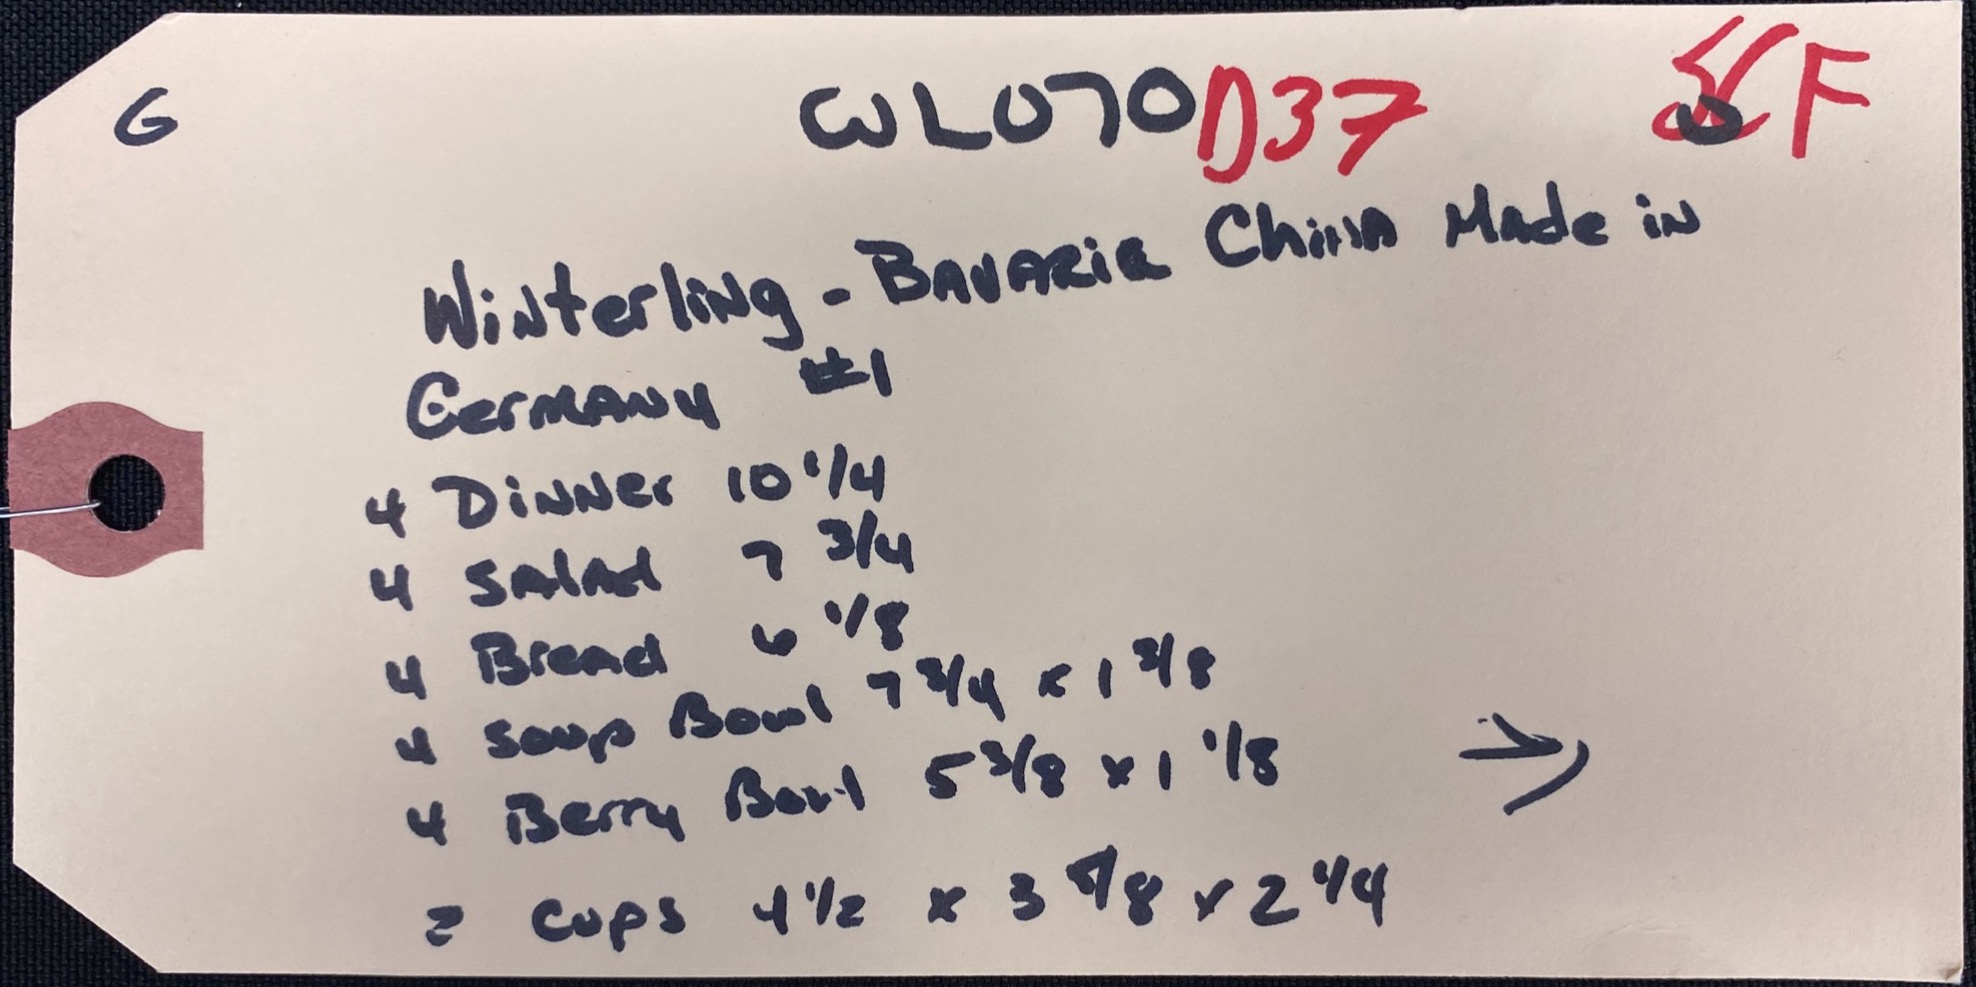 G WL070 D37 F
Winterling - Bavaria China Made in
Germany #1
4 Dinner 10 1/4
4 Salad 7 3/4
4 Bread 6 1/8
4 Soup Bowl 7 3/4 x 1 3/8
4 Berry Bowl 5 3/8 x 1 1/8 →
2 Cups 4 1/2 x 3 7/8 x 2 1/4